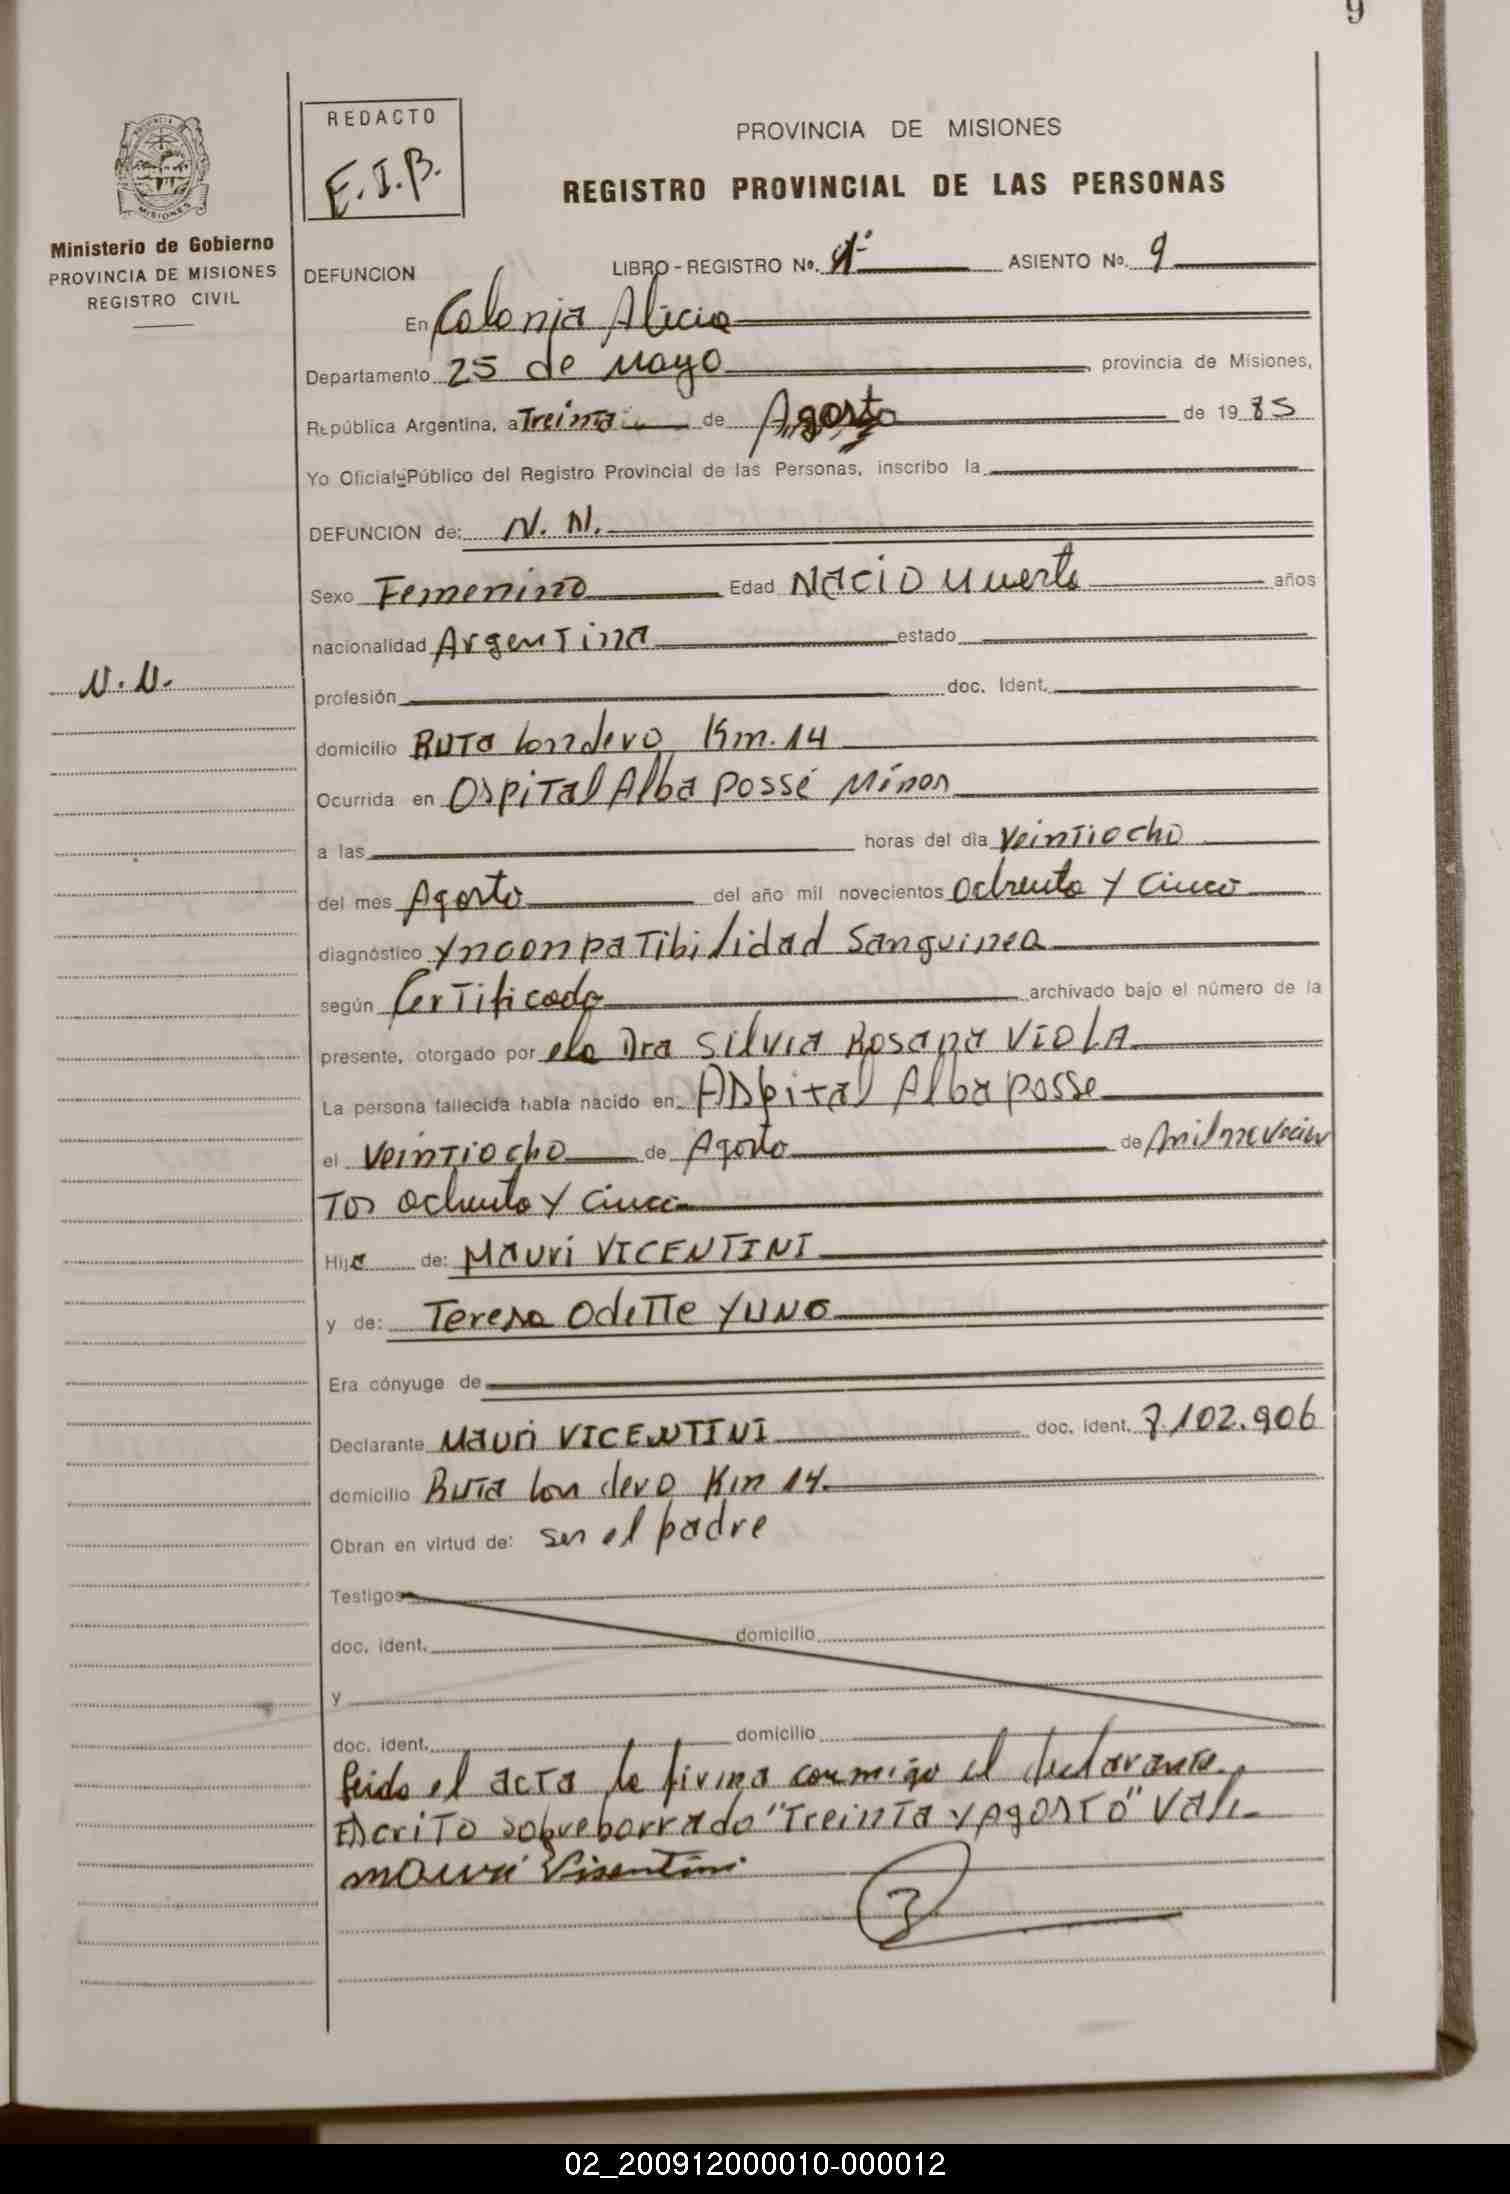 9
REDACTO
E.I.B.
PROVINCIA DE MISIONES
REGISTRO PROVINCIAL DE LAS PERSONAS
PROVINCIA DE MISIONES
Ministerio de Gobierno
PROVINCIA DE MISIONES
REGISTRO CIVIL
DEFUNCION LIBRO - REGISTRO No. ASIENTO No. 9
En Colonia Alicia
Departamento 25 de Mayo, provincia de Misiones,
República Argentina, a Treinta de Agosto de 1985
Yo Oficial Público del Registro Provincial de las Personas, inscribo la
DEFUNCION de: N. N.
Sexo Femenino Edad NACIO Muerta años
nacionalidad Argentina estado
N. N.
profesión doc. Ident.
domicilio Ruta Km. 14
Ocurrida en Ospital Alba Possé Misiones
a las horas del día Veintiocho
del mes Agosto del año mil novecientos Ochenta y Cinco
diagnóstico Ynconpatibilidad Sanguinea
según Certificado archivado bajo el número de la
presente, otorgado por Dra Silvia Rosana VIOLA
La persona fallecida había nacido en: Alba posse
el Veintiocho de Agosto de milnovecien
Tos Ochenta y Cinco
Hija de: Mauri VICENTINI
y de: Teresa Odette YUNG
Era cónyuge de
Declarante Mauri VICENTINI doc. ident. 7.102.906
domicilio Ruta Km 14
Obran en virtud de: ser el padre
Testigos
doc. ident. domicilio
y
doc. ident. domicilio
leido el acta la firma conmigo el declarante
Escrito sobreborrado "Treinta y Agosto" Vale
Mauri Visentini
02_200912000010-000012